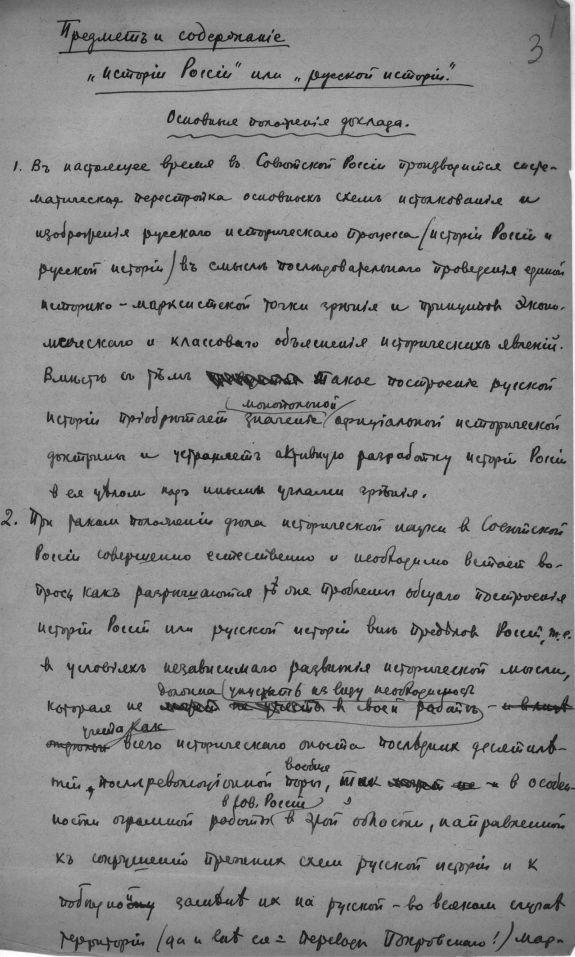 3
Предметъ и содержаніе
„исторіи Россіи" или „русской исторіи".
Основныя положенія доклада.
1. Въ настоящее время въ Совѣтской Россіи производится систе-
матическая перестройка основныхъ схемъ истолкованія и
изображенія русскаго историческаго процесса (исторіи Россіи и
русской исторіи) въ смыслѣ послѣдовательнаго проведенія единой
историко-марксистской точки зрѣнія и принципов эконо-
мическаго и классоваго объясненія историческихъ явленій.
Вмѣстѣ съ тѣмъ такое построеніе русской
исторіи пріобрѣтаетъ монопольной значеніе официальной исторической
доктрины и устраняетъ активную разработку исторіи Россіи
в ея цѣлом под иными углами зрѣнія.
2. При таком положеніи дѣла исторической науки в Совѣтской
Россіи совершенно естественно и необходимо встает во-
прос, как разрѣшаются тѣ же проблемы общаго построенія
исторіи Россіи или русской исторіи внѣ предѣлов Россіи, т.е.
в условіях независимаго развитія исторической мысли,
которая не должна упускать из виду необходимость
учета как всего историческаго опыта послѣдних десятилѣ-
тій, послѣреволюціонной поры вообще, в особен-
ности огромной работы в Сов. Россіи в этой области, направленной
къ сокрушенію прежних схем русской исторіи и к
замѣнѣ их на русской - во всяком случаѣ
территоріи (да и внѣ ея = переводы Покровскаго!) мар-